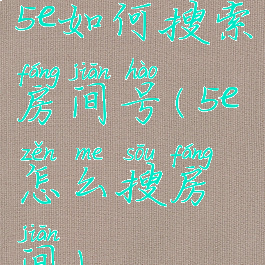 5e如何搜索
fáng jiān hào
房间号(5e
zěn me sōu fáng
怎么搜房
jiān
间)